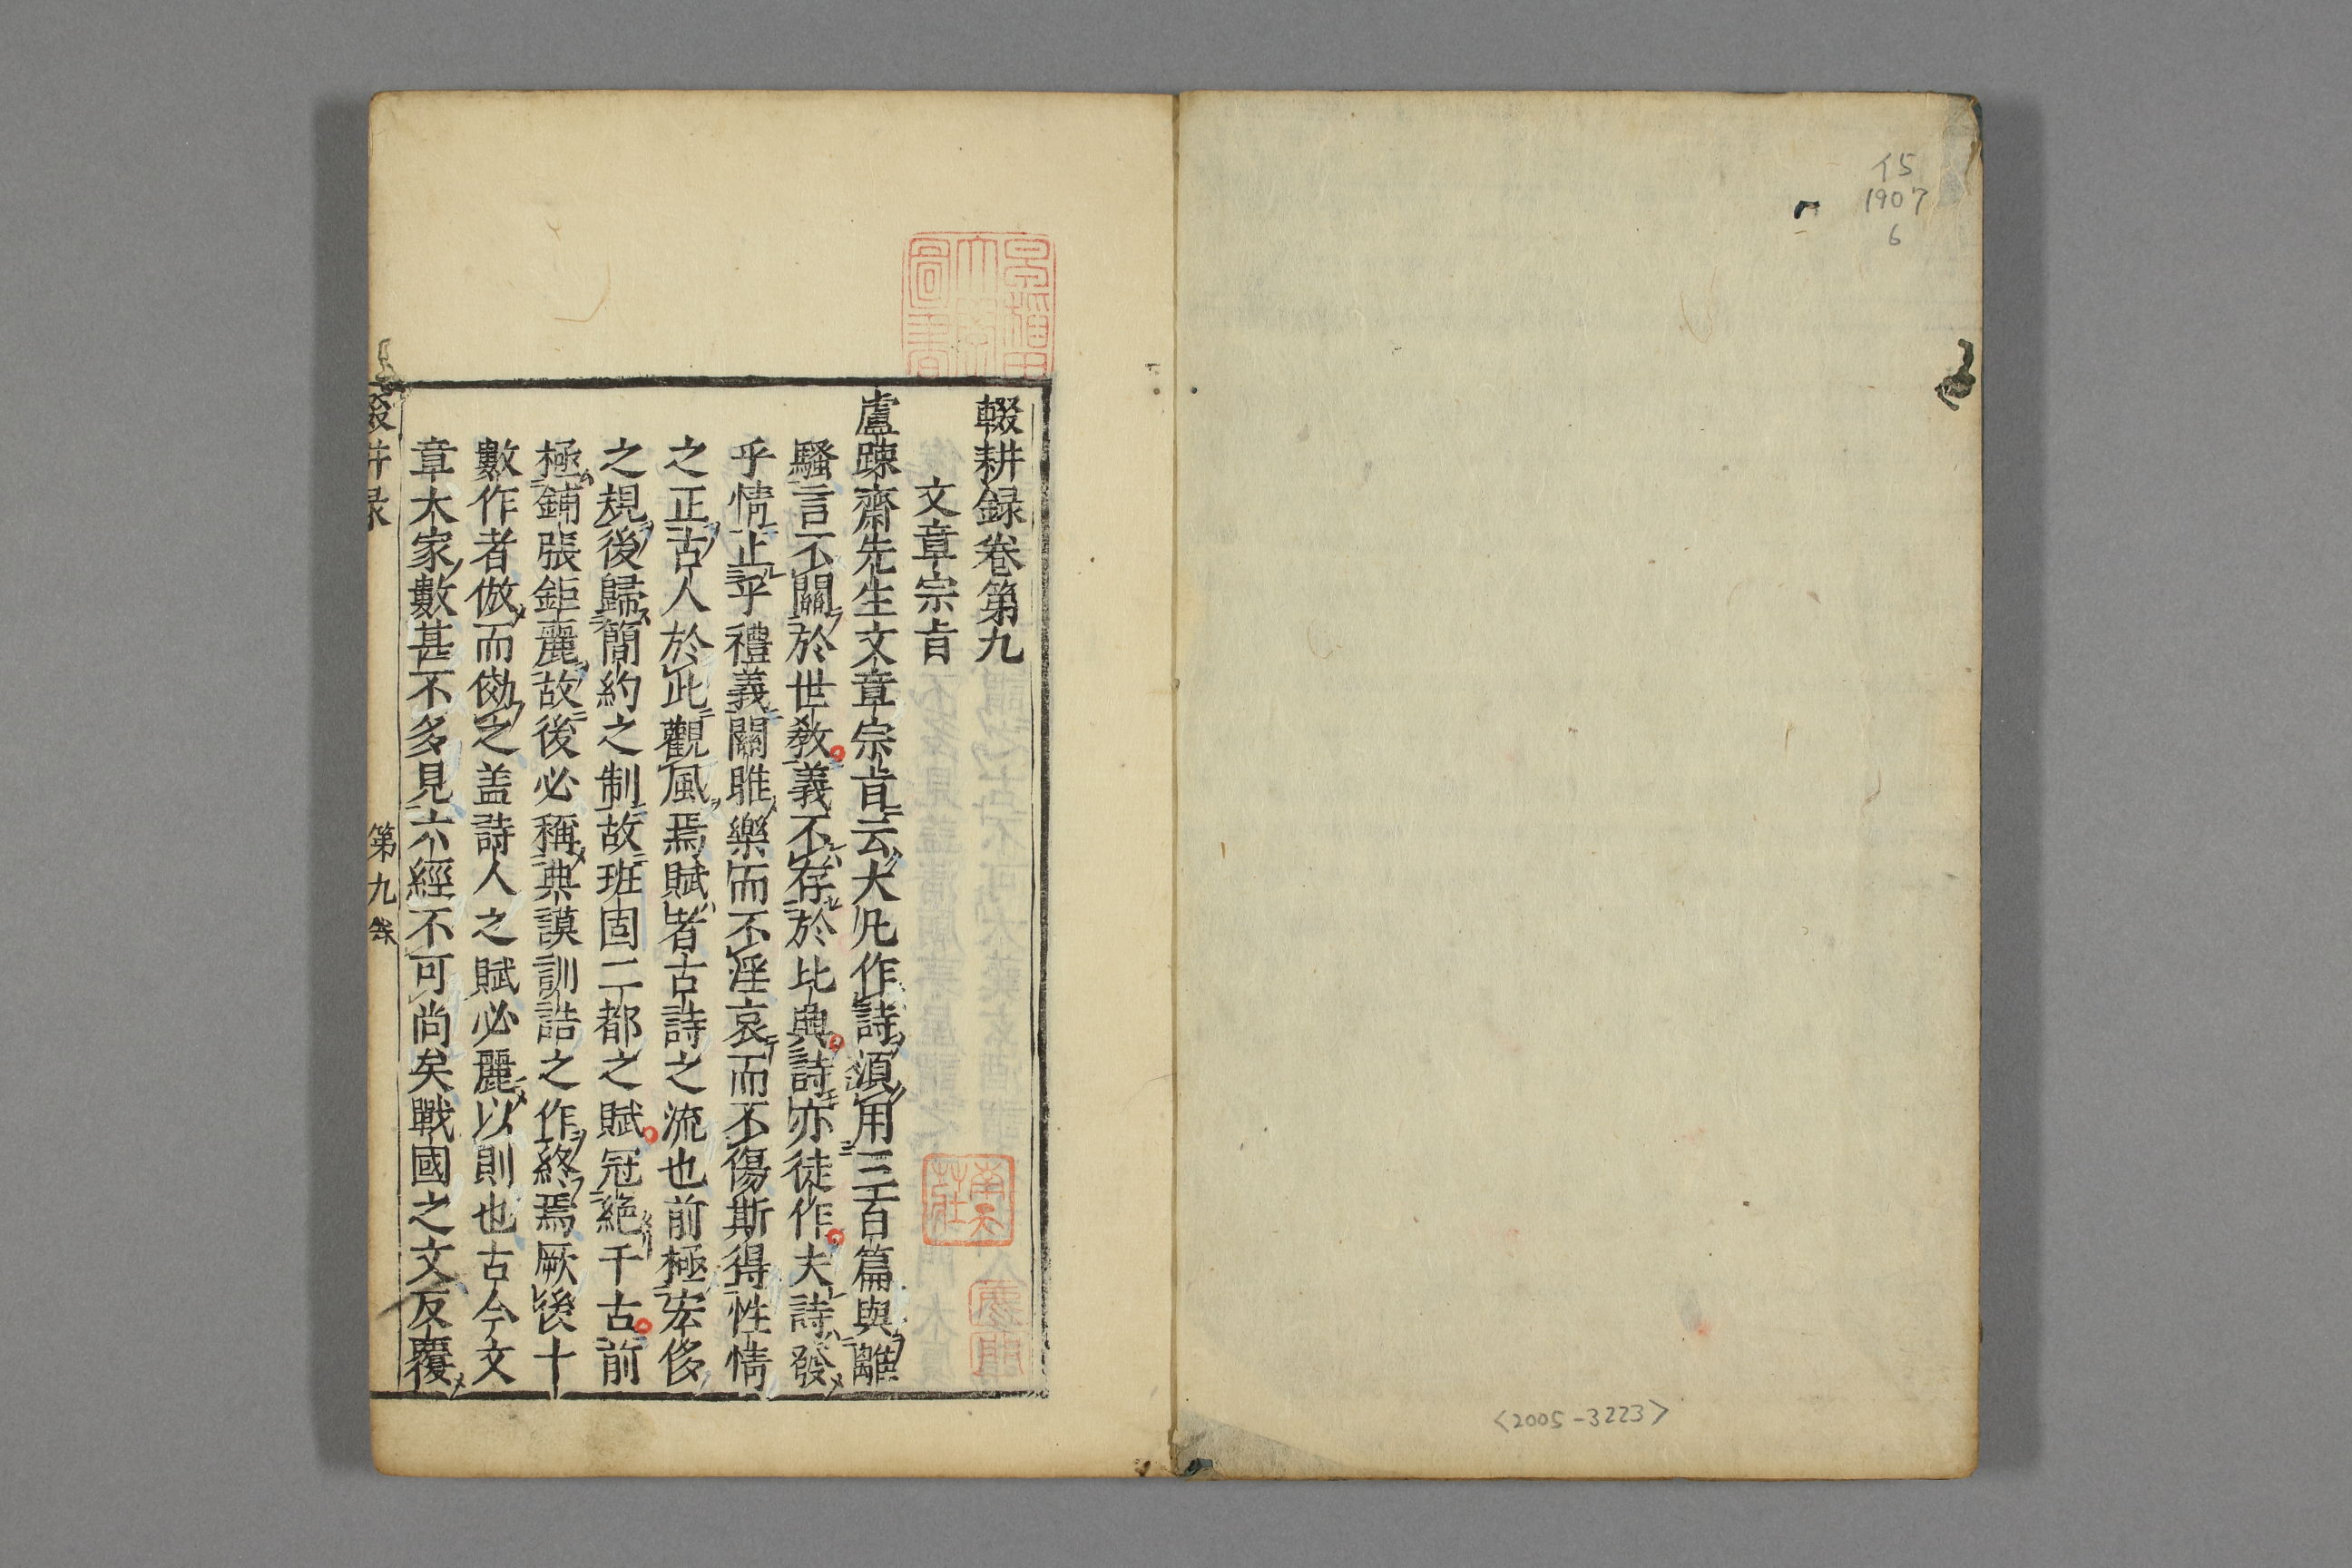 イ5
1907
6
<2005-3223>
早稲田
大學
圖書
輟耕録卷第九
文章宗㫖
盧踈齋先生文章宗㫖云大凡作詩湏用三百篇與離
騷言不關於世教義不存於比興詩亦徒作夫詩發
乎情止乎禮義關雎樂而不淫哀而不傷斯得性情
之正古人於此觀風焉賦者古詩之流也前極宏侈
之規後歸簡約之制故班固二都之賦冠絶千古前
極鋪張鉅麗故後必稱典謨訓誥之作終焉厥後十
數作者倣而効之盖詩人之賦必麗以則也古今文
章大家數甚不多見六經不可尚矣戰國之文反覆
輟耕録
第九